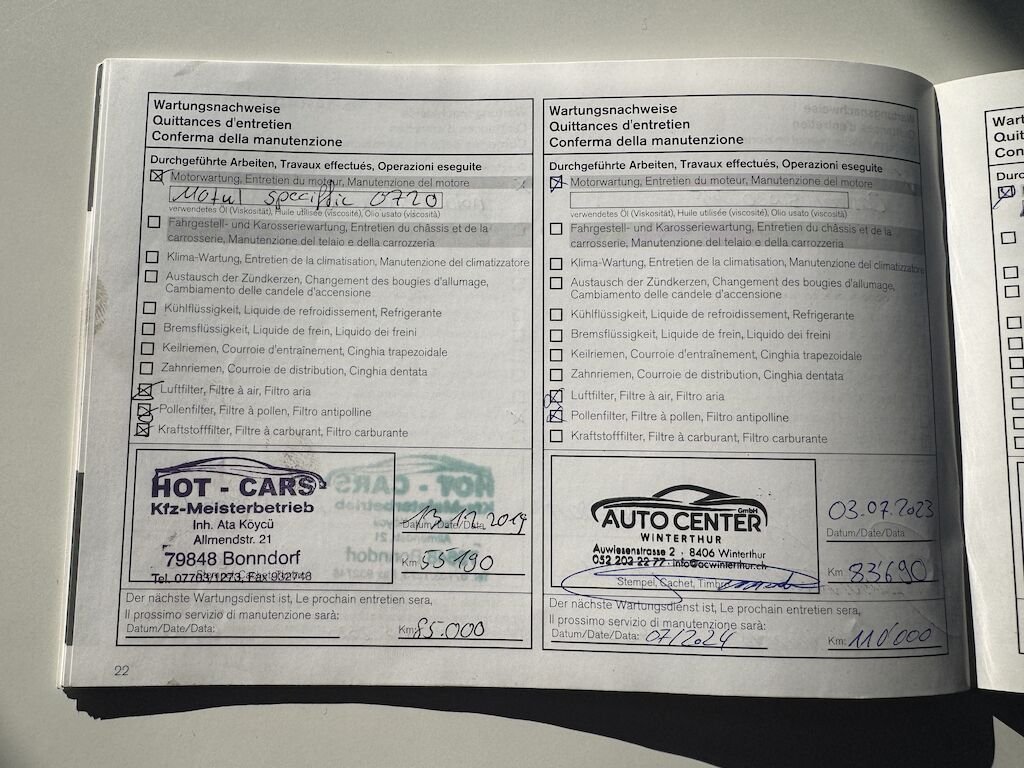 Wartungsnachweise
Quittances d'entretien
Conferma della manutenzione
Durchgeführte Arbeiten, Travaux effectués, Operazioni eseguite
Motorwartung, Entretien du moteur, Manutenzione del motore
Motul specific 0720
verwendetes Öl (Viskosität), Huile utilisée (viscosité), Olio usato (viscosità)
Fahrgestell- und Karosseriewartung, Entretien du châssis et de la
carrosserie, Manutenzione del telaio e della carrozzeria
Klima-Wartung, Entretien de la climatisation, Manutenzione del climatizzatore
Austausch der Zündkerzen, Changement des bougies d'allumage,
Cambiamento delle candele d'accensione
Kühlflüssigkeit, Liquide de refroidissement, Refrigerante
Bremsflüssigkeit, Liquide de frein, Liquido dei freini
Keilriemen, Courroie d'entraînement, Cinghia trapezoidale
Zahnriemen, Courroie de distribution, Cinghia dentata
Luftfilter, Filtre à air, Filtro aria
Pollenfilter, Filtre à pollen, Filtro antipolline
Kraftstofffilter, Filtre à carburant, Filtro carburante
HOT - CARS
Kfz-Meisterbetrieb
Inh. Ata Köycü
Allmendstr. 21
79848 Bonndorf
Tel. 07703/1273, Fax 932748
13.12.2019
Datum/Date/Data
Km: 55190
Der nächste Wartungsdienst ist, Le prochain entretien sera,
Il prossimo servizio di manutenzione sarà:
Datum/Date/Data:
Km: 85.000
22
Wartungsnachweise
Quittances d'entretien
Conferma della manutenzione
Durchgeführte Arbeiten, Travaux effectués, Operazioni eseguite
Motorwartung, Entretien du moteur, Manutenzione del motore
verwendetes Öl (Viskosität), Huile utilisée (viscosité), Olio usato (viscosità)
Fahrgestell- und Karosseriewartung, Entretien du châssis et de la
carrosserie, Manutenzione del telaio e della carrozzeria
Klima-Wartung, Entretien de la climatisation, Manutenzione del climatizzatore
Austausch der Zündkerzen, Changement des bougies d'allumage,
Cambiamento delle candele d'accensione
Kühlflüssigkeit, Liquide de refroidissement, Refrigerante
Bremsflüssigkeit, Liquide de frein, Liquido dei freini
Keilriemen, Courroie d'entraînement, Cinghia trapezoidale
Zahnriemen, Courroie de distribution, Cinghia dentata
Luftfilter, Filtre à air, Filtro aria
Pollenfilter, Filtre à pollen, Filtro antipolline
Kraftstofffilter, Filtre à carburant, Filtro carburante
AUTO CENTER GmbH
WINTERTHUR
Auwiesenstrasse 2 · 8406 Winterthur
052 202 22 77 · info@acwinterthur.ch
Stempel, Cachet, Timbro
03.07.2023
Datum/Date/Data
Km: 83'690
Der nächste Wartungsdienst ist, Le prochain entretien sera,
Il prossimo servizio di manutenzione sarà:
Datum/Date/Data: 07/2024
Km: 110'000